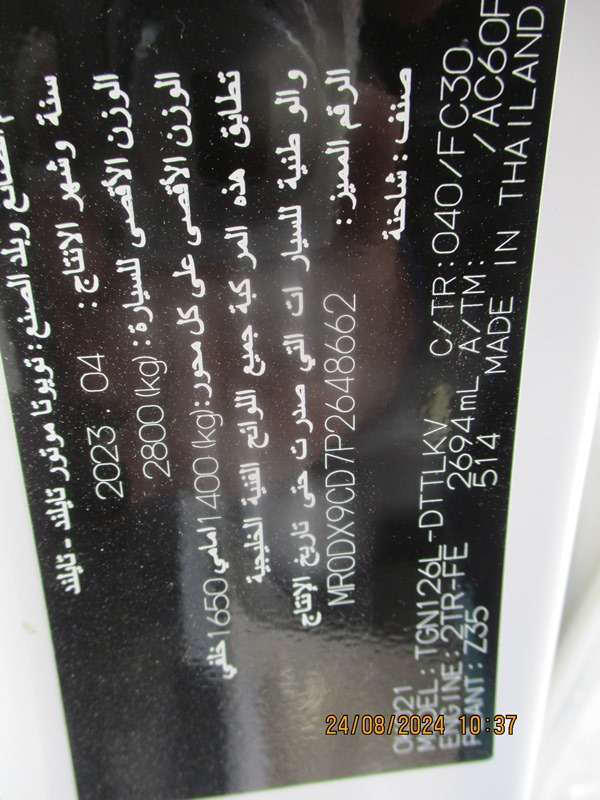 الصانع وبلد الصنع : تويوتا موتور تايلند - تايلند
سنة وشهر الانتاج : 2023 . 04
الوزن الأقصى للسيارة : 2800 (kg)
الوزن الأقصى على كل محور : 1400 (kg) امامي 1650 خلفي
تطابق هذه المركبة جميع اللوائح الفنية الخليجية
والوطنية للسيارات التي صدرت حتى تاريخ الإنتاج
الرقم المميز : MR0DX9CD7P2648662
صنف : شاحنة
MODEL: TGN126L-DTTLKV C/TR: 040/FC30
ENGINE: 2TR-FE 2694mL A/TM: /AC60F
PLANT: Z35 514 MADE IN THAILAND
24/08/2024 10:37